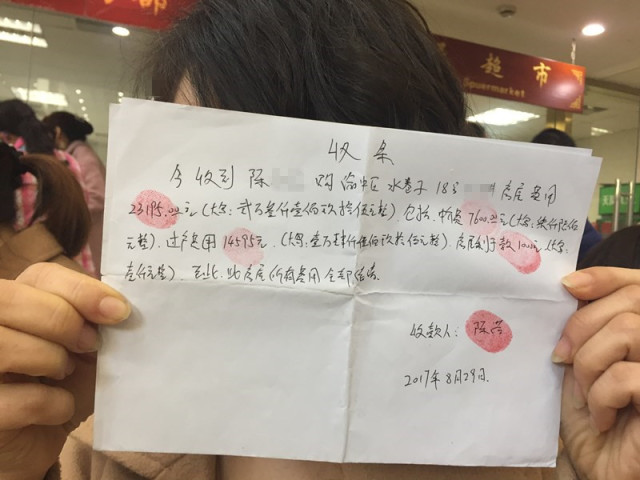 都
超市
Spuermarket
收条
今收到陈 购渝中区水巷子18号 房屋费用
23195.00元(大写:贰万叁仟壹佰玖拾伍元整)包括:中介费7600.00元(大写:柒仟陆佰
元整).过户费用14595元.(大写:壹万肆仟伍佰玖拾伍元整).房屋剩于款1000元(大写:
壹仟元整) 至此.此房屋所有费用全部结清.
收款人:陈
2017年8月29日.